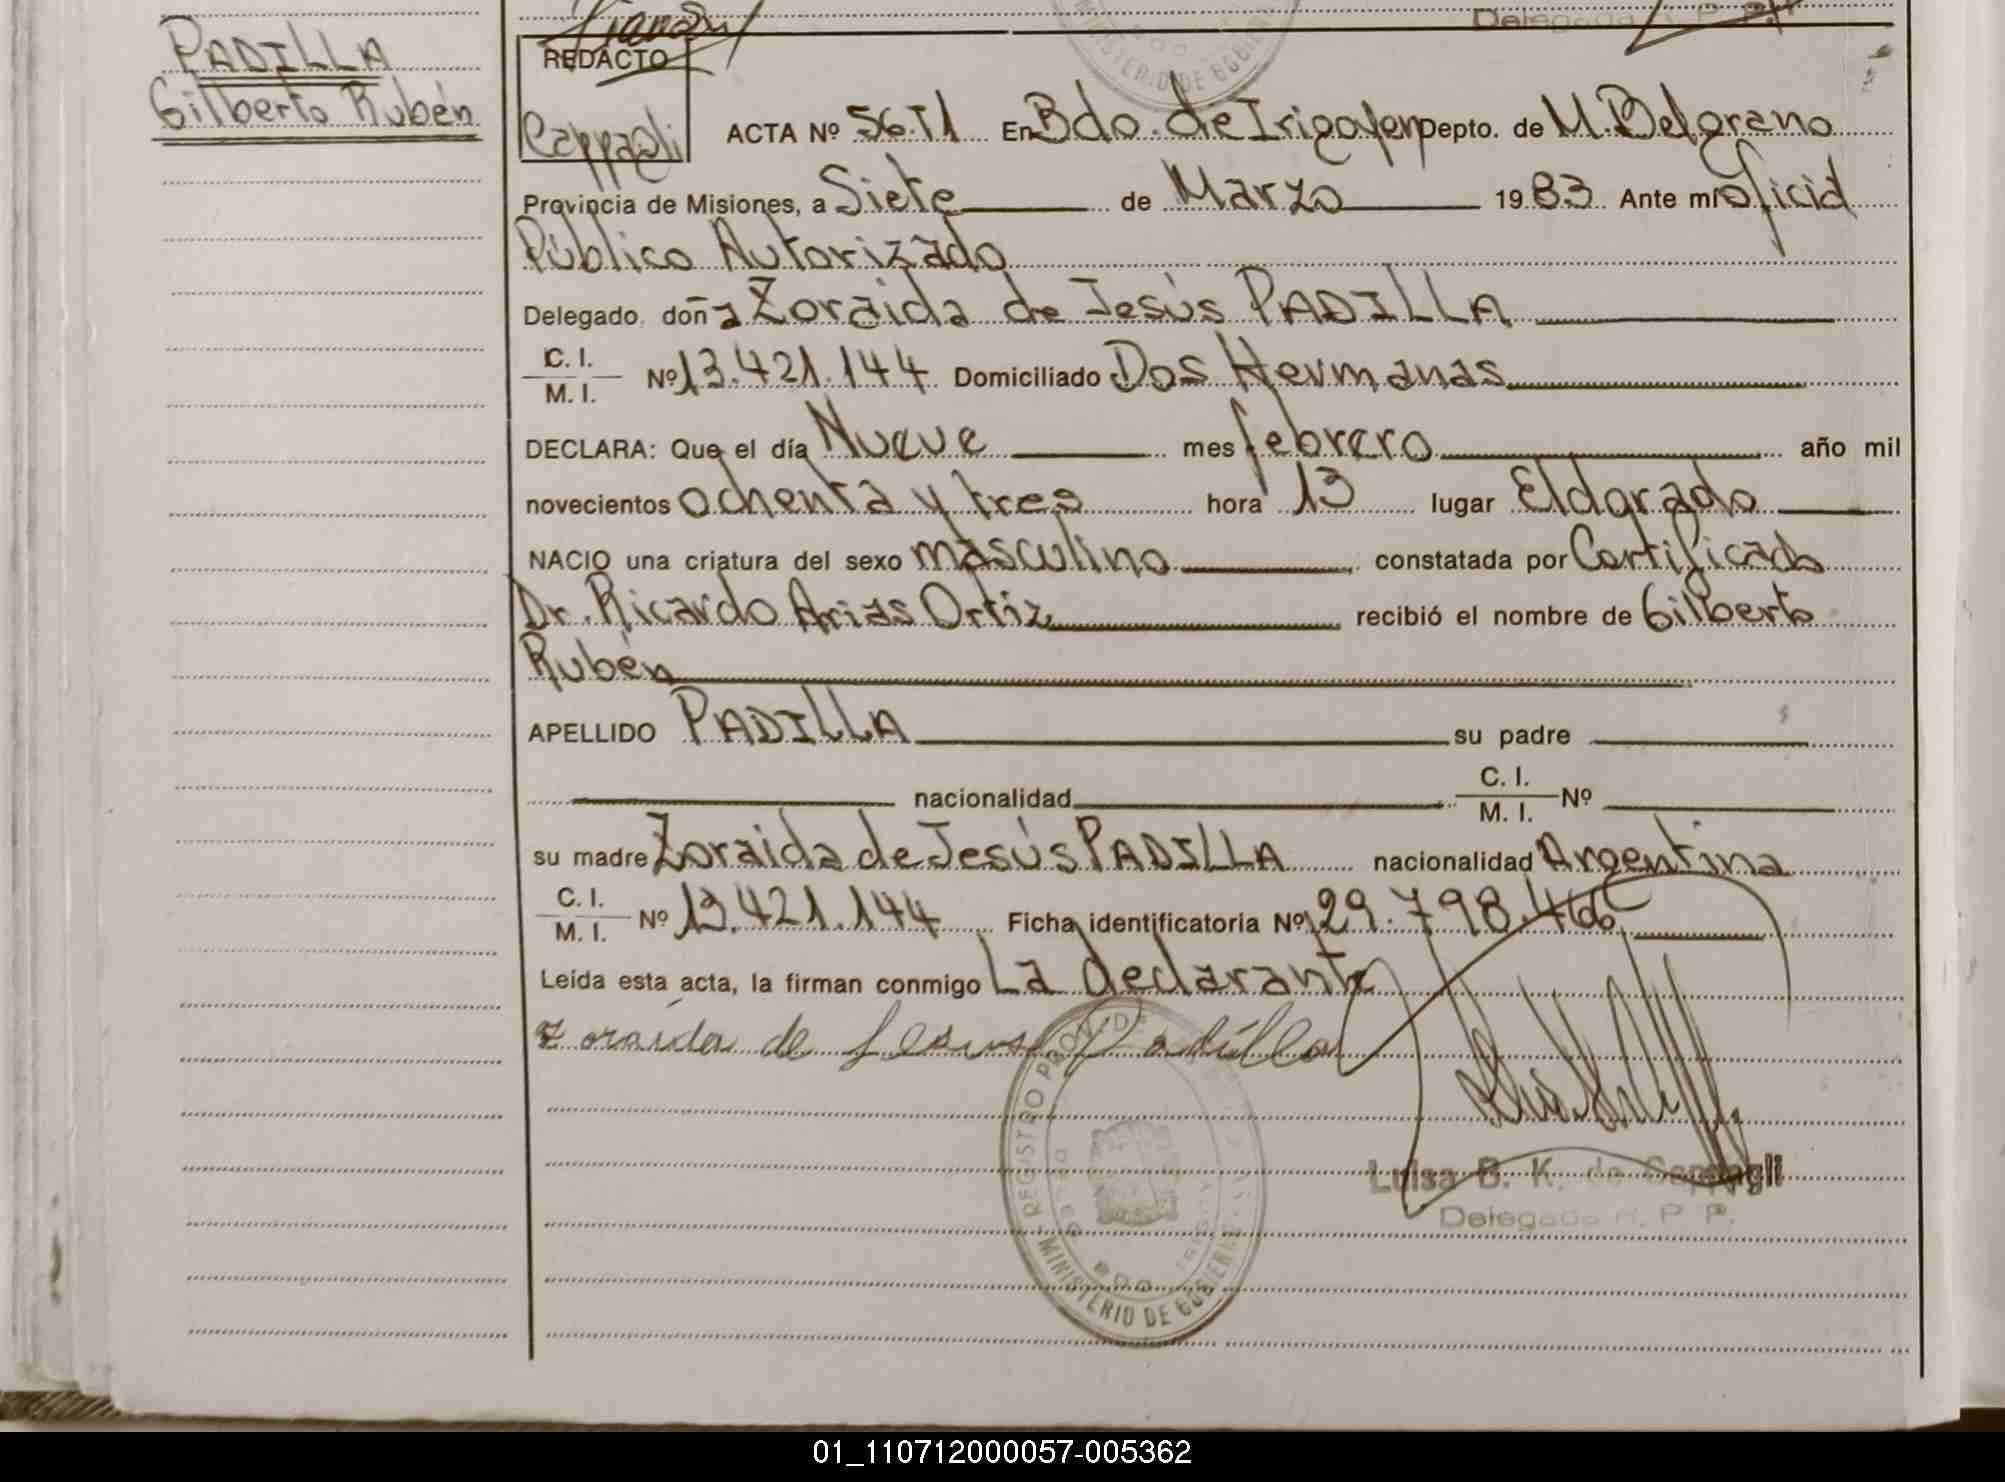 PADILLA
Gilberto Rubén
REDACTO
Cappagli
Delegada R. P. P.
MINISTERIO DE GOBIERNO
ACTA Nº 56.T1 En Bdo. de Irigoyen Depto. de M. Belgrano
Provincia de Misiones, a Siete de Marzo 1983 Ante mí Oficial
Público Autorizado
Delegado doña Zoraida de Jesús PADILLA
C. I.
M. I. Nº 13.421.144 Domiciliado Dos Hermanas
DECLARA: Que el día Nueve mes febrero año mil
novecientos ochenta y tres hora 13 lugar Eldorado
NACIO una criatura del sexo masculino constatada por Certificado
Dr. Ricardo Arias Ortiz recibió el nombre de Gilberto
Rubén
APELLIDO PADILLA su padre
nacionalidad C. I.
M. I. Nº
su madre Zoraida de Jesús PADILLA nacionalidad Argentina
C. I.
M. I. Nº 13.421.144 Ficha identificatoria Nº 29.798.460
Leída esta acta, la firman conmigo La declarante
Zoraida de Jesus Padilla
REGISTRO PROV. DE
MINISTERIO DE GOBIERNO
Luisa B. K. de Cappagli
Delegada R. P. P.
01_110712000057-005362